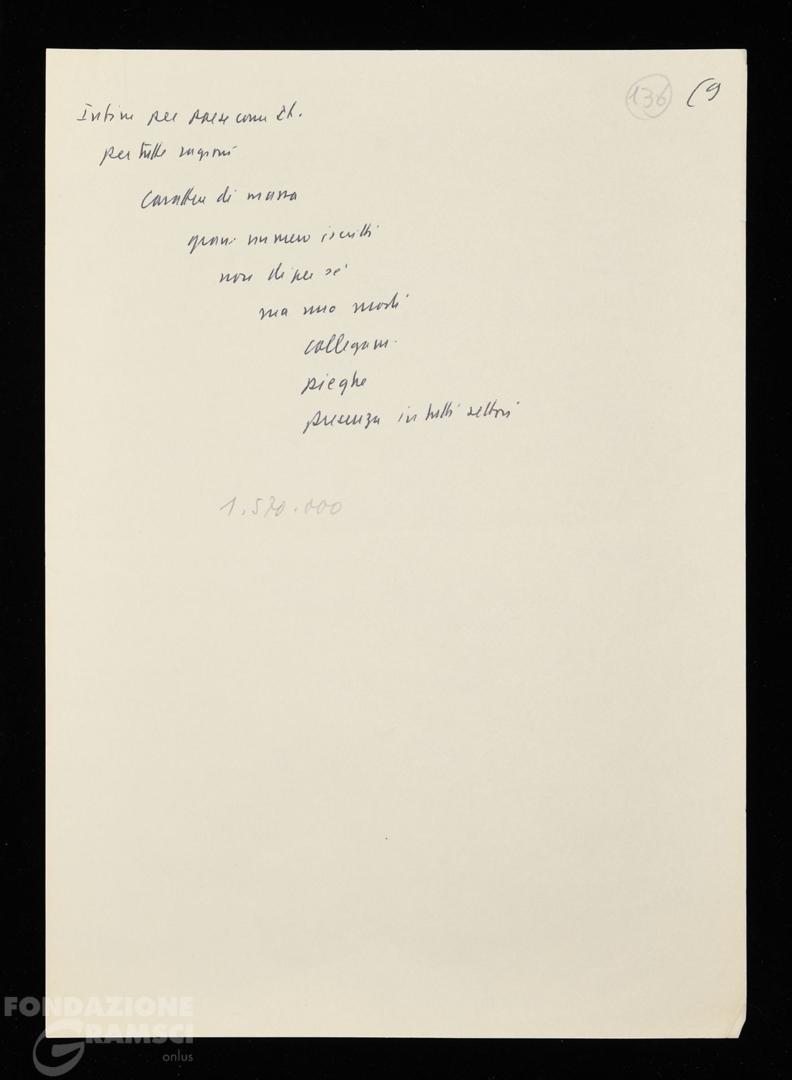 136 (9
Infine per paese come It.
per tutte ragioni
carattere di massa
gran numero iscritti
non di per sé
ma suo modi
collegam.
pieghe
presenza in tutti settori
1.570.000
FONDAZIONE
GRAMSCI
onlus